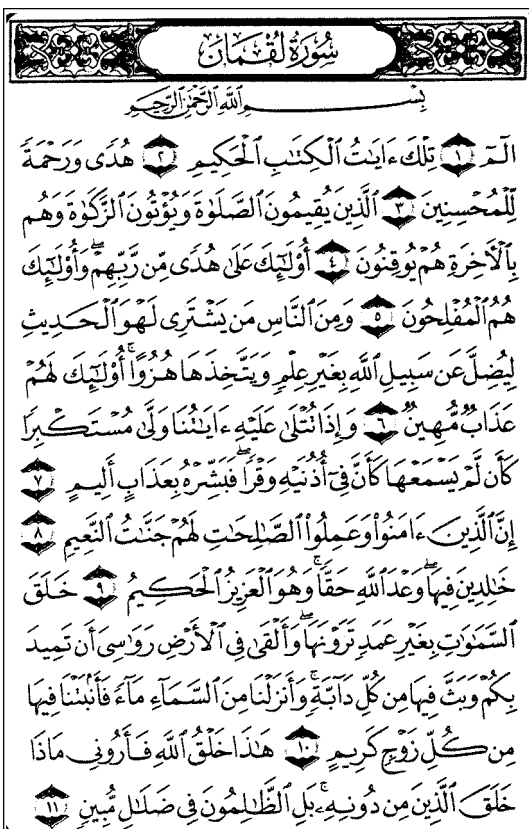 سُورَةُ لُقْمَانَ
بِسْمِ اللَّهِ الرَّحْمَٰنِ الرَّحِيمِ
الٓمٓ ١ تِلْكَ ءَايَٰتُ ٱلْكِتَٰبِ ٱلْحَكِيمِ ٢ هُدًى وَرَحْمَةً
لِّلْمُحْسِنِينَ ٣ ٱلَّذِينَ يُقِيمُونَ ٱلصَّلَوٰةَ وَيُؤْتُونَ ٱلزَّكَوٰةَ وَهُم
بِٱلْءَاخِرَةِ هُمْ يُوقِنُونَ ٤ أُو۟لَٰٓئِكَ عَلَىٰ هُدًى مِّن رَّبِّهِمْ ۖ وَأُو۟لَٰٓئِكَ
هُمُ ٱلْمُفْلِحُونَ ٥ وَمِنَ ٱلنَّاسِ مَن يَشْتَرِى لَهْوَ ٱلْحَدِيثِ
لِيُضِلَّ عَن سَبِيلِ ٱللَّهِ بِغَيْرِ عِلْمٍ وَيَتَّخِذَهَا هُزُوًا ۚ أُو۟لَٰٓئِكَ لَهُمْ
عَذَابٌ مُّهِينٌ ٦ وَإِذَا تُتْلَىٰ عَلَيْهِ ءَايَٰتُنَا وَلَّىٰ مُسْتَكْبِرًا
كَأَن لَّمْ يَسْمَعْهَا كَأَنَّ فِىٓ أُذُنَيْهِ وَقْرًا ۖ فَبَشِّرْهُ بِعَذَابٍ أَلِيمٍ ٧
إِنَّ ٱلَّذِينَ ءَامَنُوا۟ وَعَمِلُوا۟ ٱلصَّٰلِحَٰتِ لَهُمْ جَنَّٰتُ ٱلنَّعِيمِ ٨
خَٰلِدِينَ فِيهَا ۖ وَعْدَ ٱللَّهِ حَقًّا ۚ وَهُوَ ٱلْعَزِيزُ ٱلْحَكِيمُ ٩ خَلَقَ
ٱلسَّمَٰوَٰتِ بِغَيْرِ عَمَدٍ تَرَوْنَهَا ۖ وَأَلْقَىٰ فِى ٱلْأَرْضِ رَوَٰسِىَ أَن تَمِيدَ
بِكُمْ وَبَثَّ فِيهَا مِن كُلِّ دَآبَّةٍ ۚ وَأَنزَلْنَا مِنَ ٱلسَّمَآءِ مَآءً فَأَنۢبَتْنَا فِيهَا
مِن كُلِّ زَوْجٍ كَرِيمٍ ١٠ هَٰذَا خَلْقُ ٱللَّهِ فَأَرُونِى مَاذَا
خَلَقَ ٱلَّذِينَ مِن دُونِهِۦ ۚ بَلِ ٱلظَّٰلِمُونَ فِى ضَلَٰلٍ مُّبِينٍ ١١